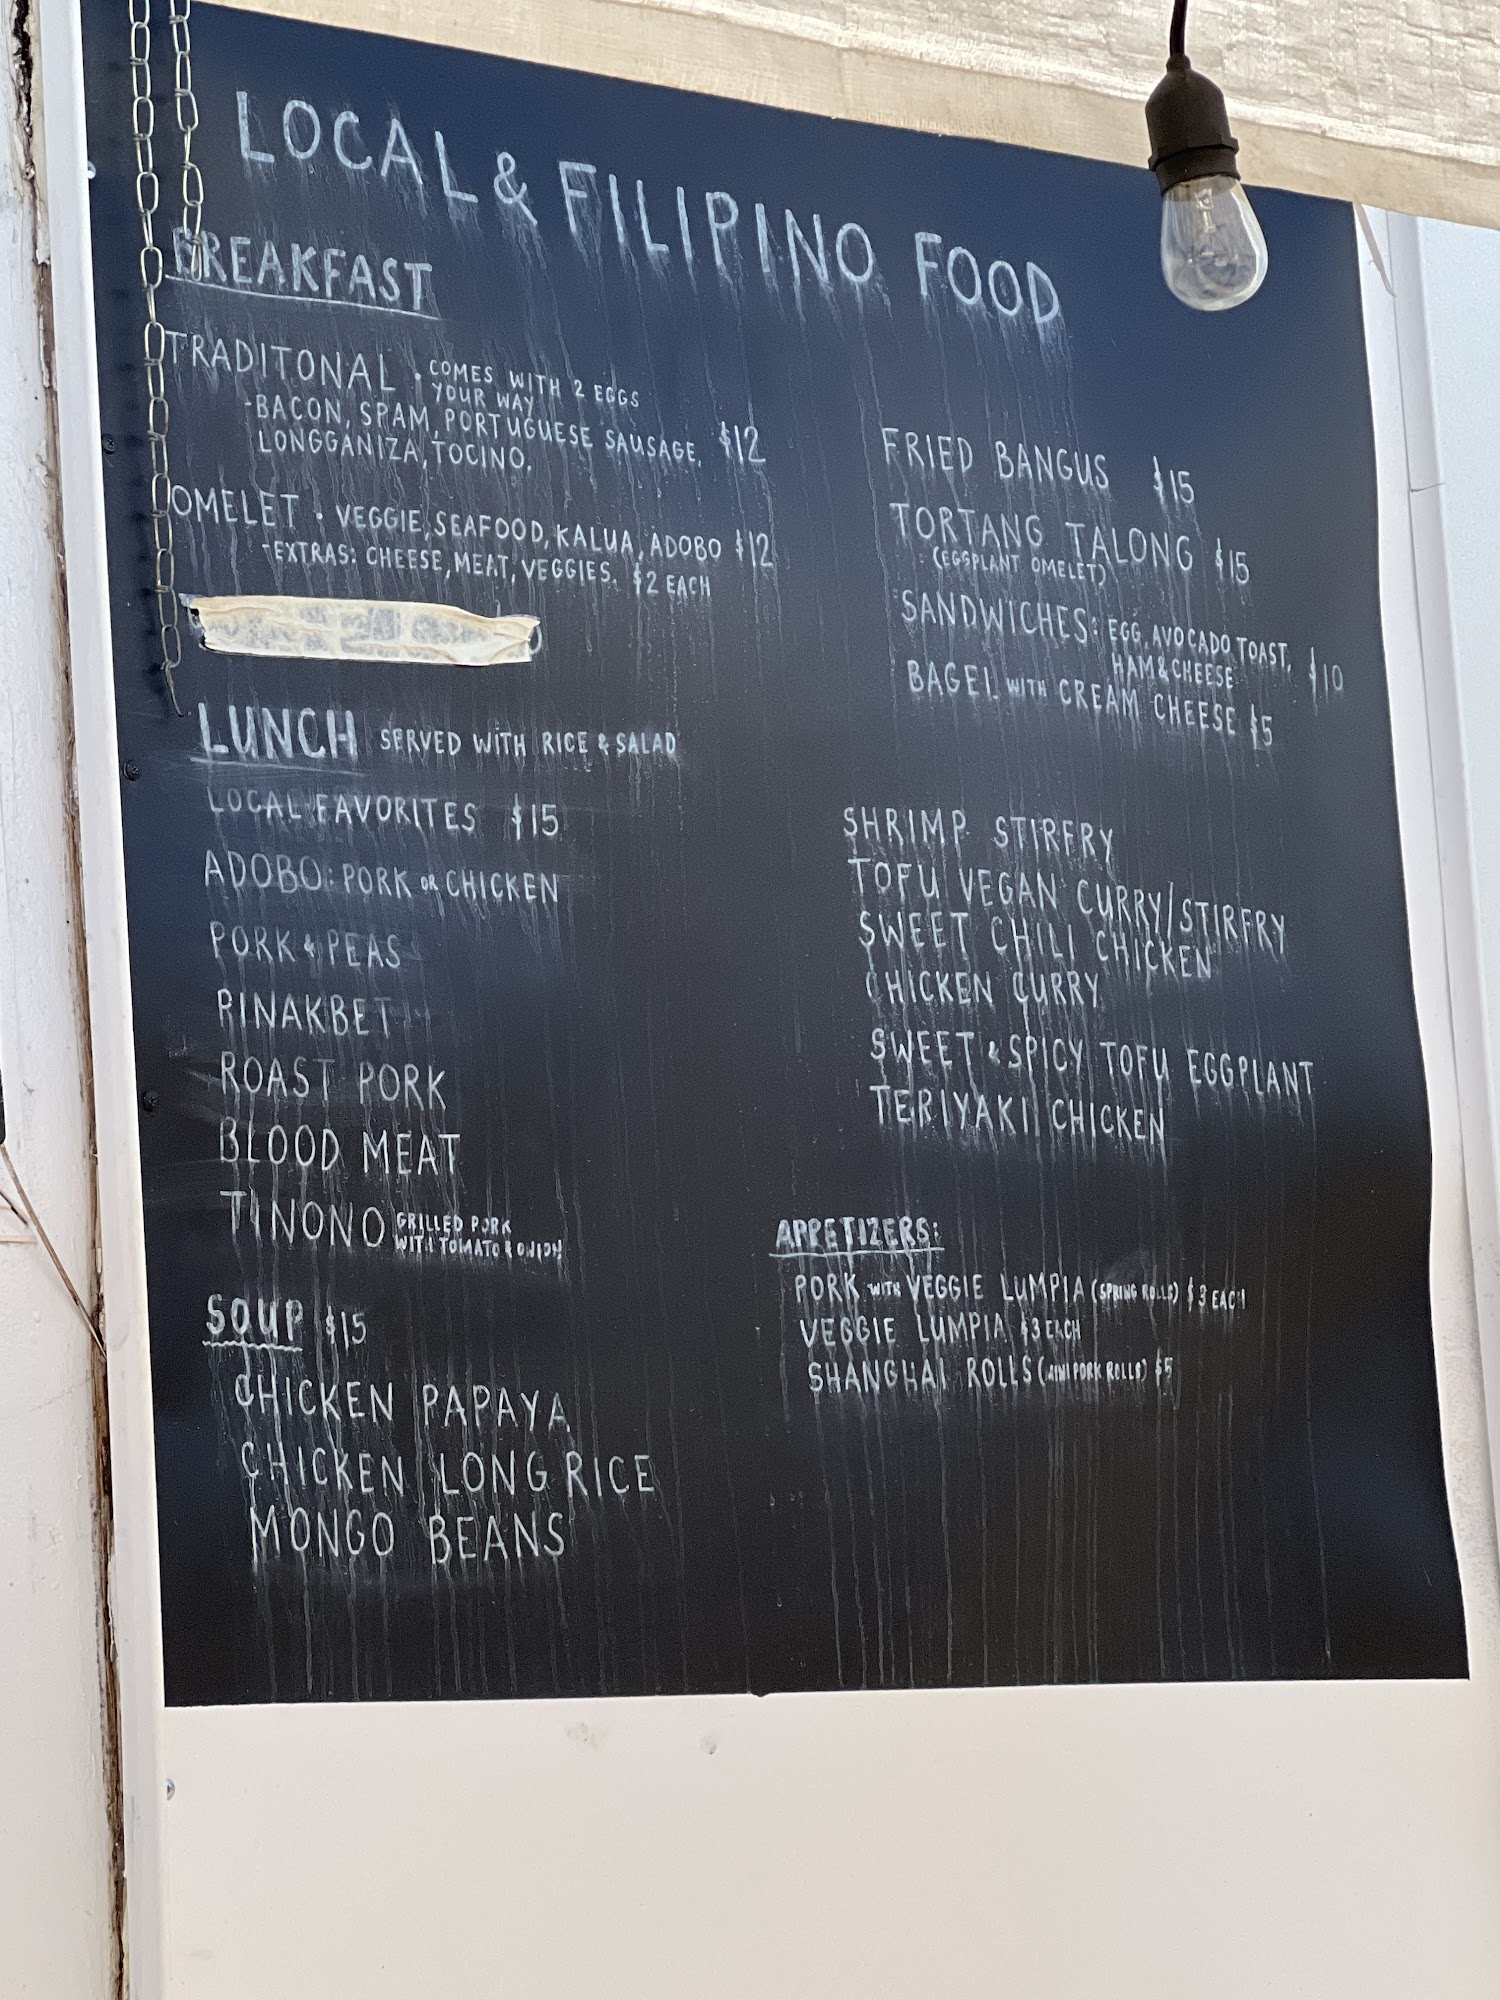 LOCAL & FILIPINO FOOD
BREAKFAST
TRADITONAL • COMES WITH 2 EGGS
YOUR WAY
-BACON, SPAM, PORTUGUESE SAUSAGE, $12
LONGGANIZA, TOCINO.
OMELET • VEGGIE, SEAFOOD, KALUA, ADOBO $12
-EXTRAS: CHEESE, MEAT, VEGGIES. $2 EACH
FRIED BANGUS $15
TORTANG TALONG $15
(EGGPLANT OMELET)
SANDWICHES: EGG, AVOCADO TOAST, $10
HAM & CHEESE
BAGEL WITH CREAM CHEESE $5
LUNCH SERVED WITH RICE & SALAD
LOCAL FAVORITES $15
ADOBO: PORK OR CHICKEN
PORK & PEAS
PINAKBET
ROAST PORK
BLOOD MEAT
TINONO GRILLED PORK
WITH TOMATO & ONION
SHRIMP STIRFRY
TOFU VEGAN CURRY/STIRFRY
SWEET CHILI CHICKEN
CHICKEN CURRY
SWEET & SPICY TOFU EGGPLANT
TERIYAKI CHICKEN
SOUP $15
CHICKEN PAPAYA
CHICKEN LONG RICE
MONGO BEANS
APPETIZERS:
PORK WITH VEGGIE LUMPIA (SPRING ROLLS) $3 EACH
VEGGIE LUMPIA $3 EACH
SHANGHAI ROLLS (MINI PORK ROLLS) $5